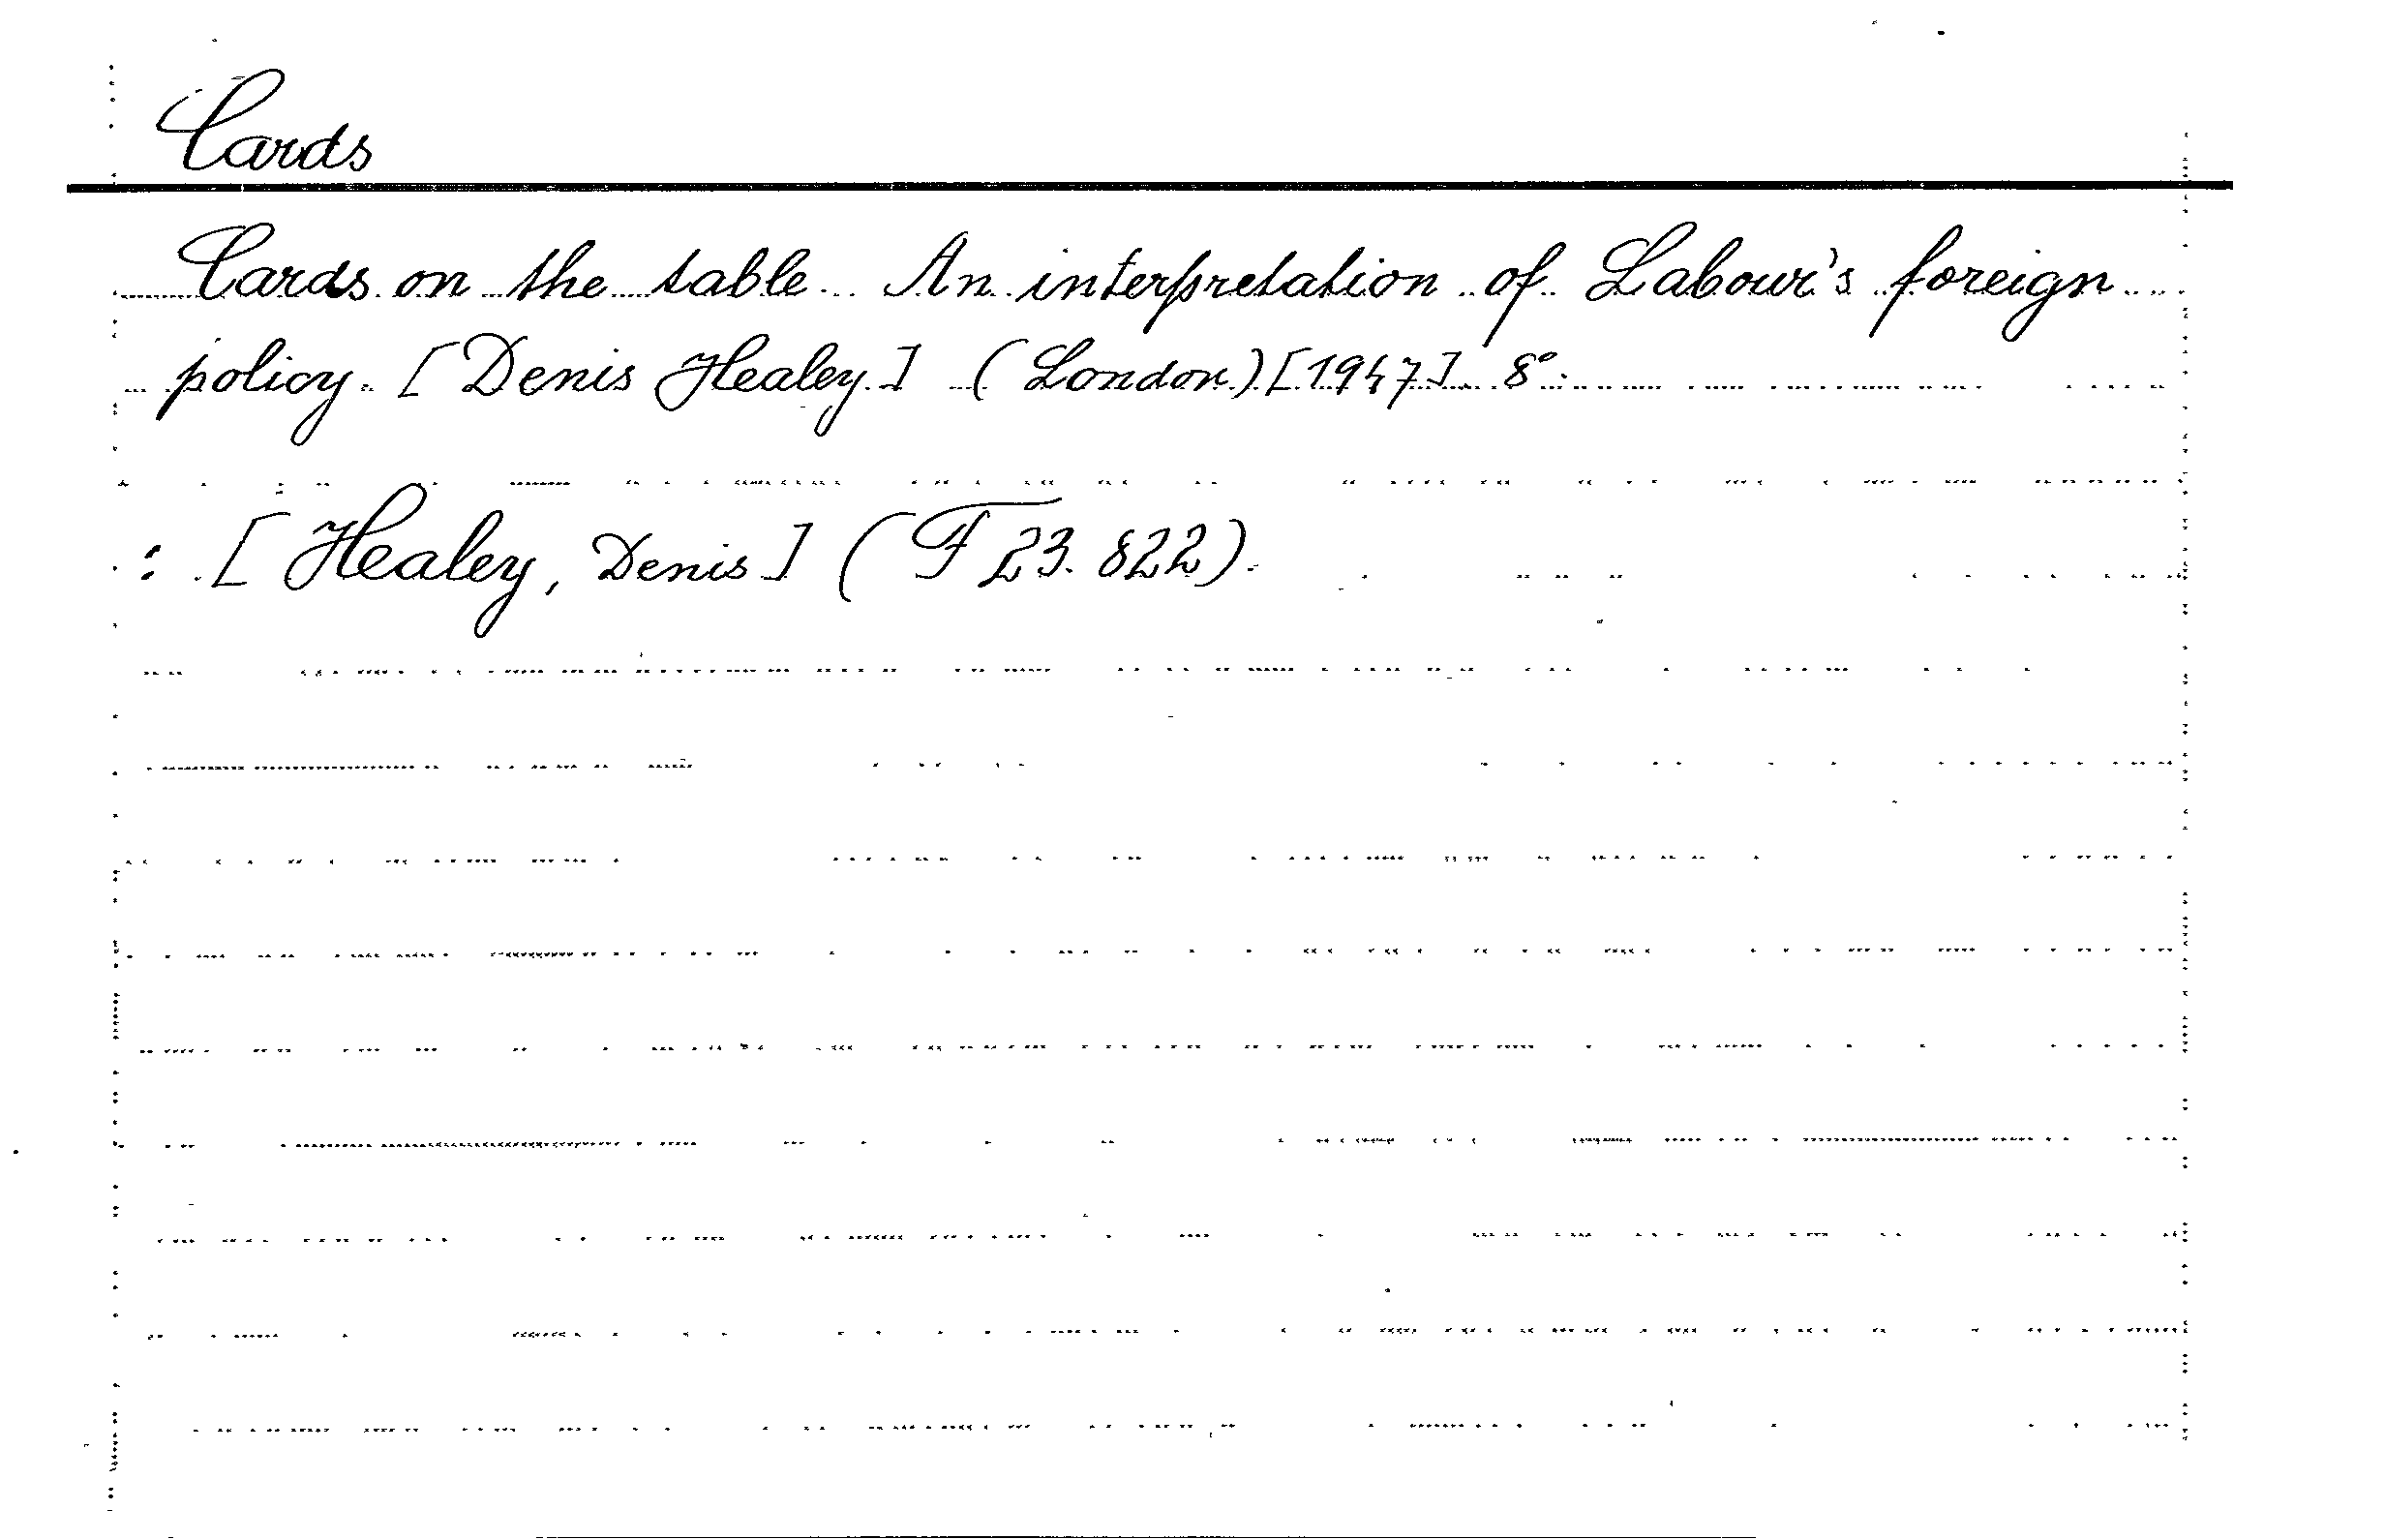 Cards
Cards on the table. An interpretation of Labour's foreign
policy. [Denis Healey] (London) [1947]. 8°.
: [Healey, Denis] (F 23.822).